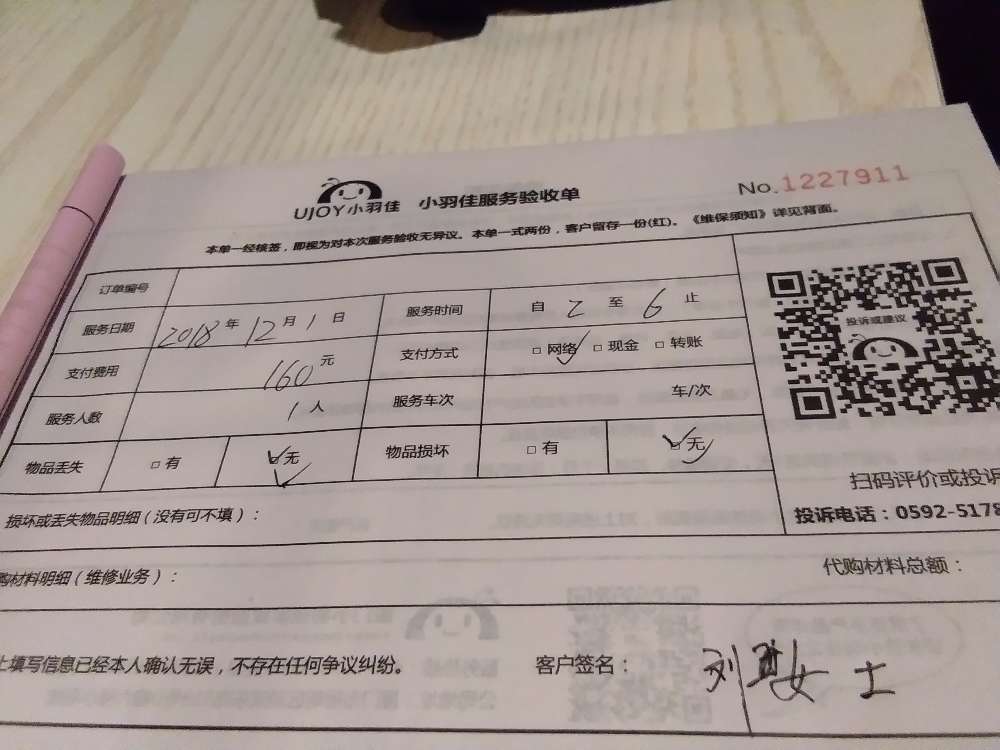 UJOY小羽佳 小羽佳服务验收单 No.1227911
本单一经核签,即视为对本次服务验收无异议。本单一式两份,客户留存一份(红)。《维保须知》详见背面。
订单编号
服务日期 2018年12月1日 服务时间 自2至6止
支付费用 160元 支付方式 □网络 □现金 □转账
服务人数 1人 服务车次 车/次
物品丢失 □有 □无 物品损坏 □有 □无
投诉或建议
扫码评价或投诉
投诉电话:0592-5178
损坏或丢失物品明细(没有可不填):
购材料明细(维修业务): 代购材料总额:
上填写信息已经本人确认无误,不存在任何争议纠纷。 客户签名: 刘女士